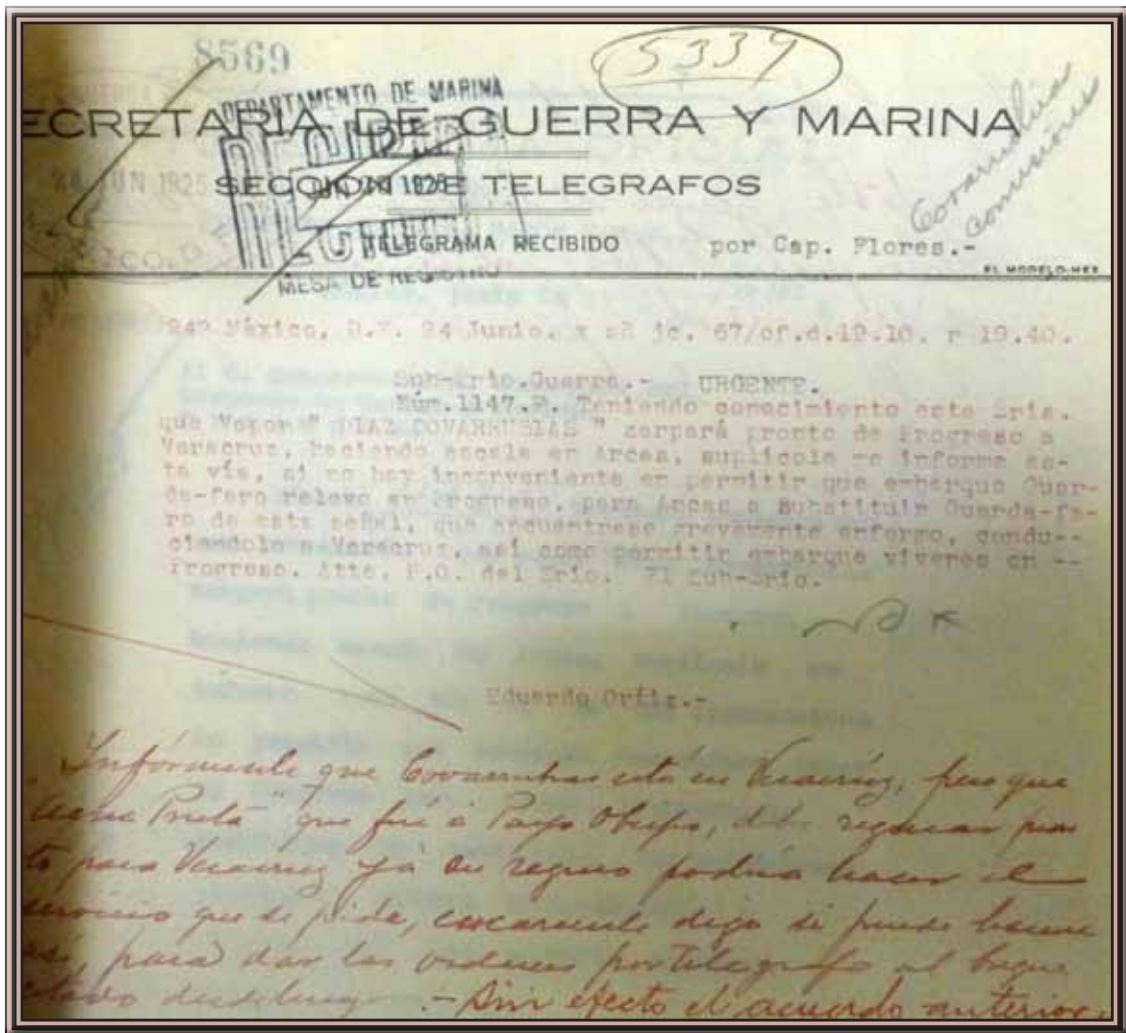 8569
5339
DEPARTAMENTO DE MARINA
ECRETARIA DE GUERRA Y MARINA
Covarrubias
comisiones
24 JUN 1925
SECCION DE TELEGRAFOS
TELEGRAMA RECIBIDO por Cap. Flores.-
MESA DE REGISTRO
EL MODELO-MEX
México, D.F. 24 Junio. 67/of.d.19.10. r 19.40.
Sub-Srio.Guerra.- URGENTE.
Núm.1147.F. Teniendo conocimiento esta Sria.
que Vapor " DIAZ COVARRUBIAS " zarpará pronto de Progreso a
Veracruz, haciendo escala en Arcas, suplícole me informe es-
ta vía, si no hay inconveniente en permitir que embarque Guar-
da-faro relevo en Progreso, para Arcas a Substituir Guarda-fa-
ro de esta señal, que encuentrase gravemente enfermo, condu--
ciendolo a Veracruz, así como permitir embarque viveres en --
Progreso. Atte. P.O. del Srio. El Sub-Srio.
Eduardo Ortiz.-
Infórmesele que Covarrubias está en Veracruz, pero que
Prieta" que fué á Payo Obispo, debe regresar pron
to para Veracruz y á su regreso podría hacer el
servicio que se pide, diga si puede hacerse
así, para dar las ordenes por telegrafo al buque
citado desde luego.- Sin efecto el acuerdo anterior.